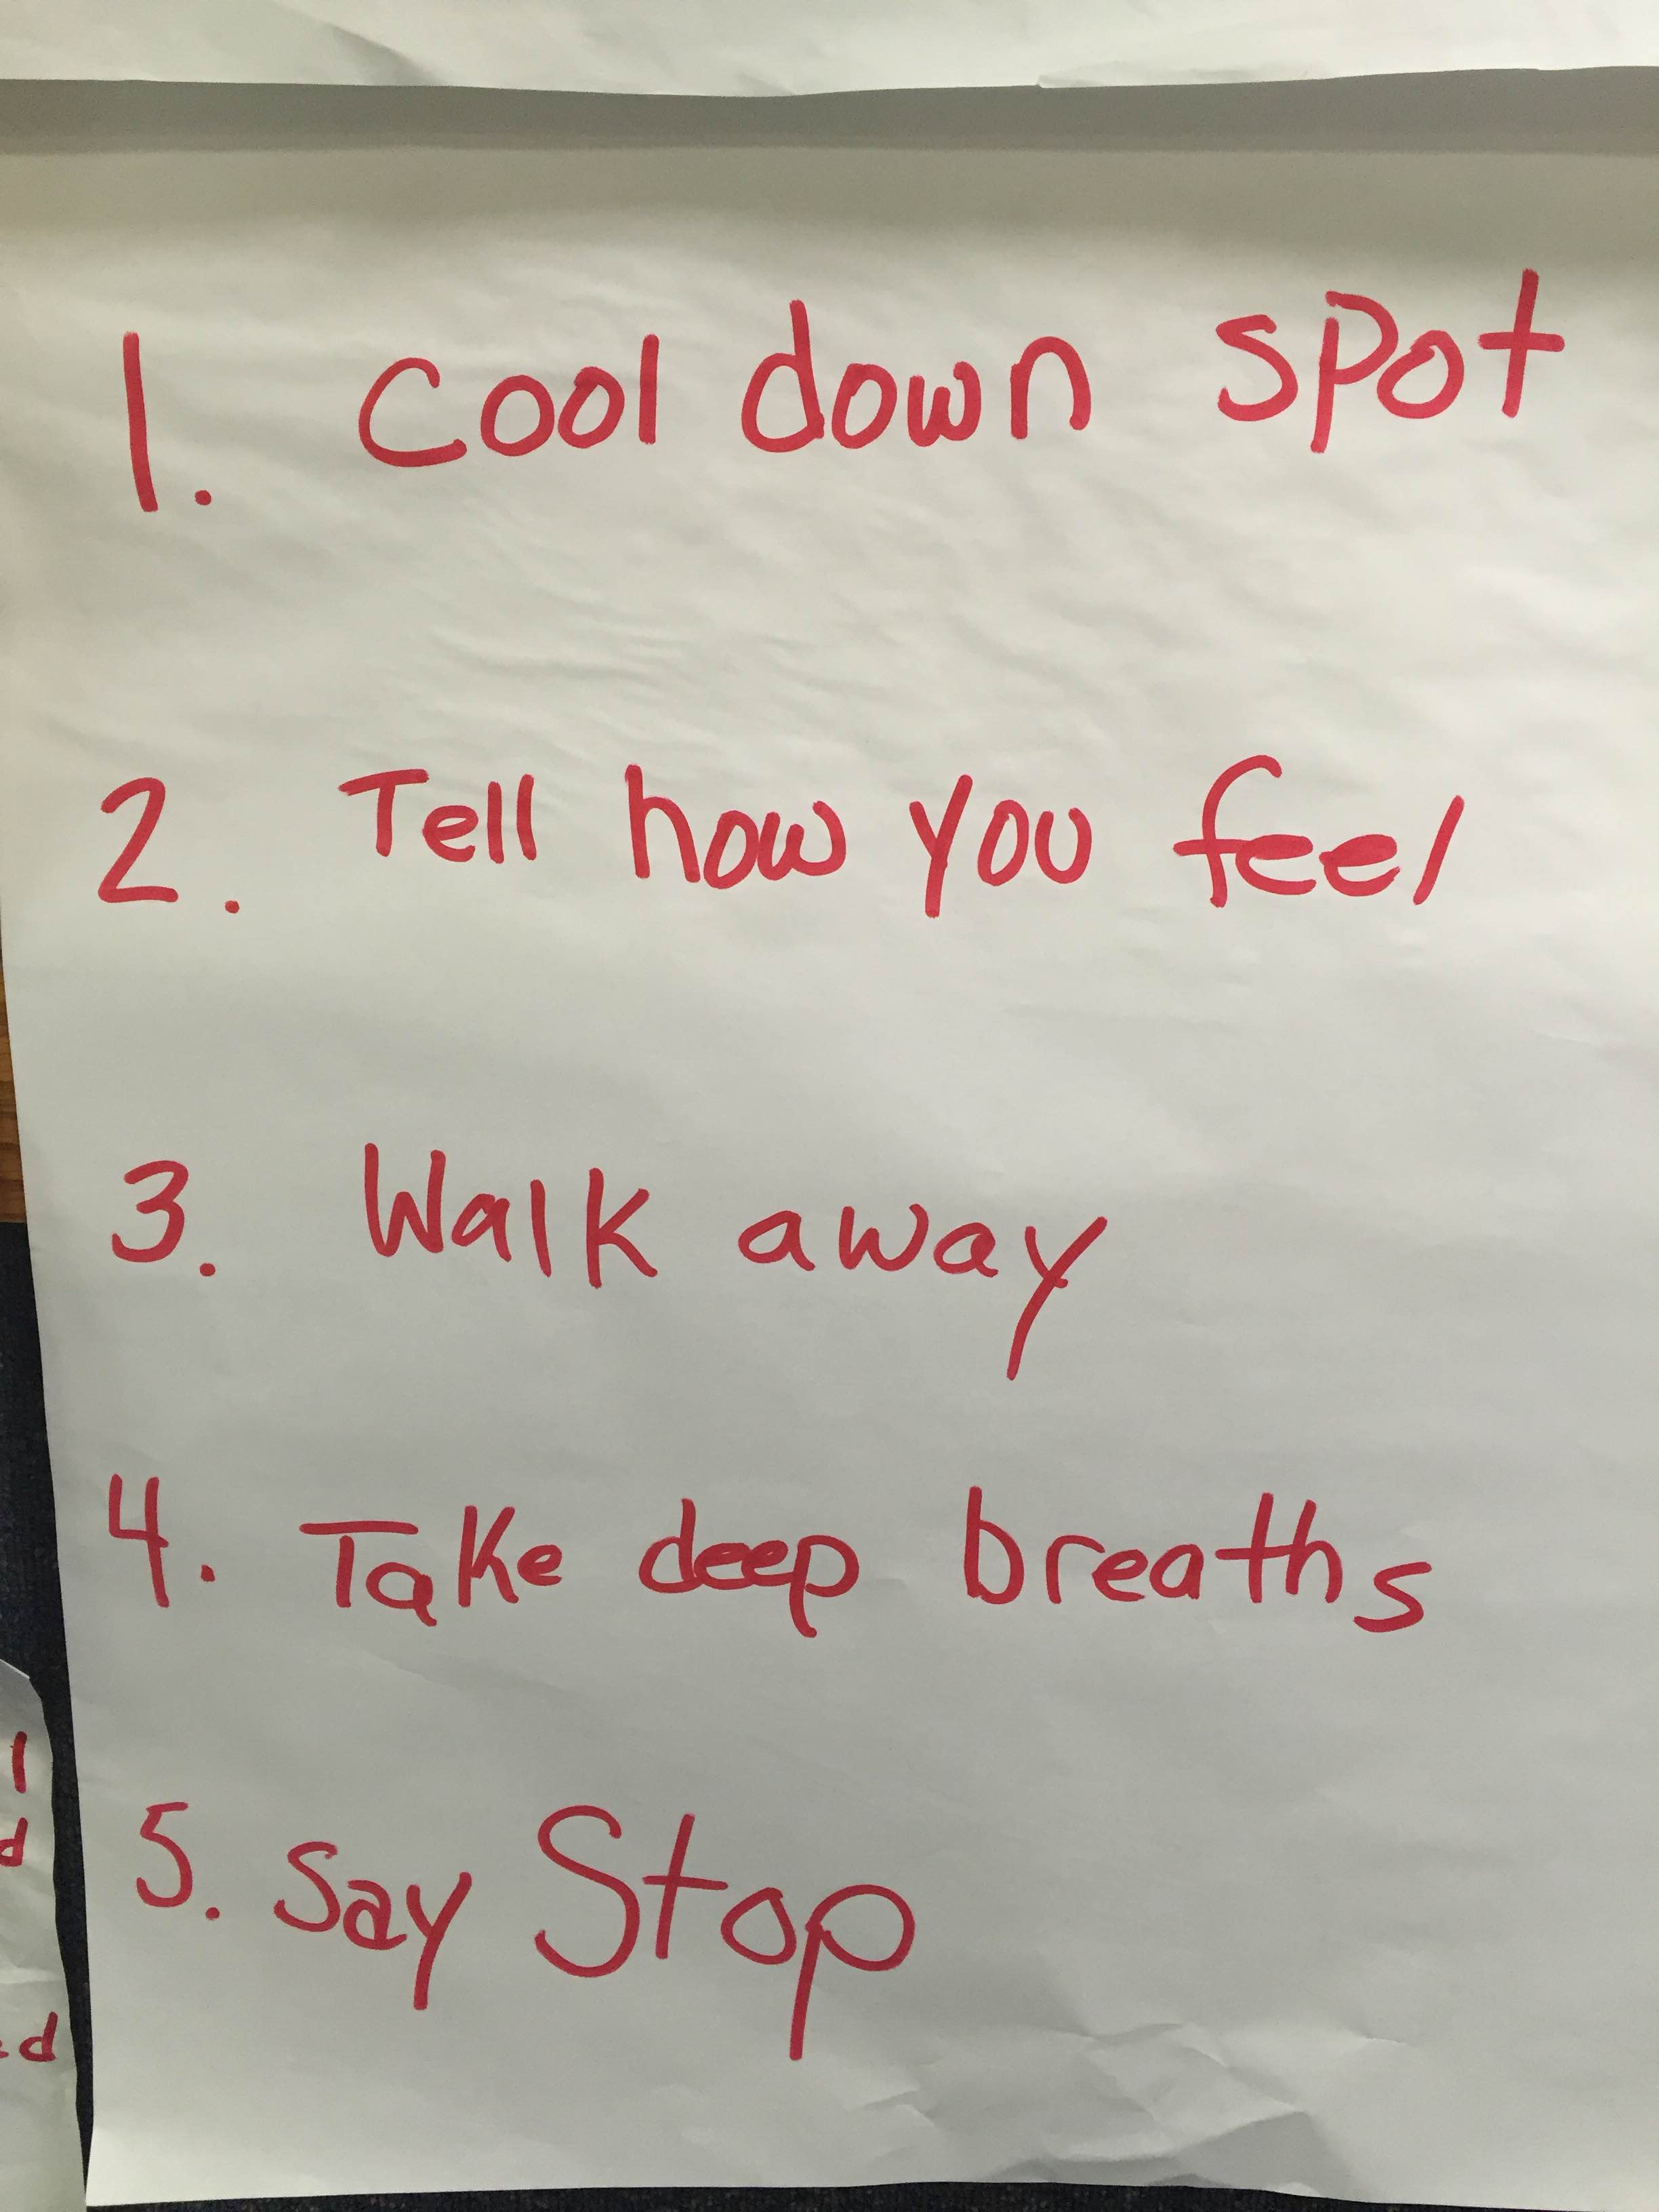 1. Cool down spot
2. Tell how you feel
3. Walk away
4. Take deep breaths
5. Say Stop